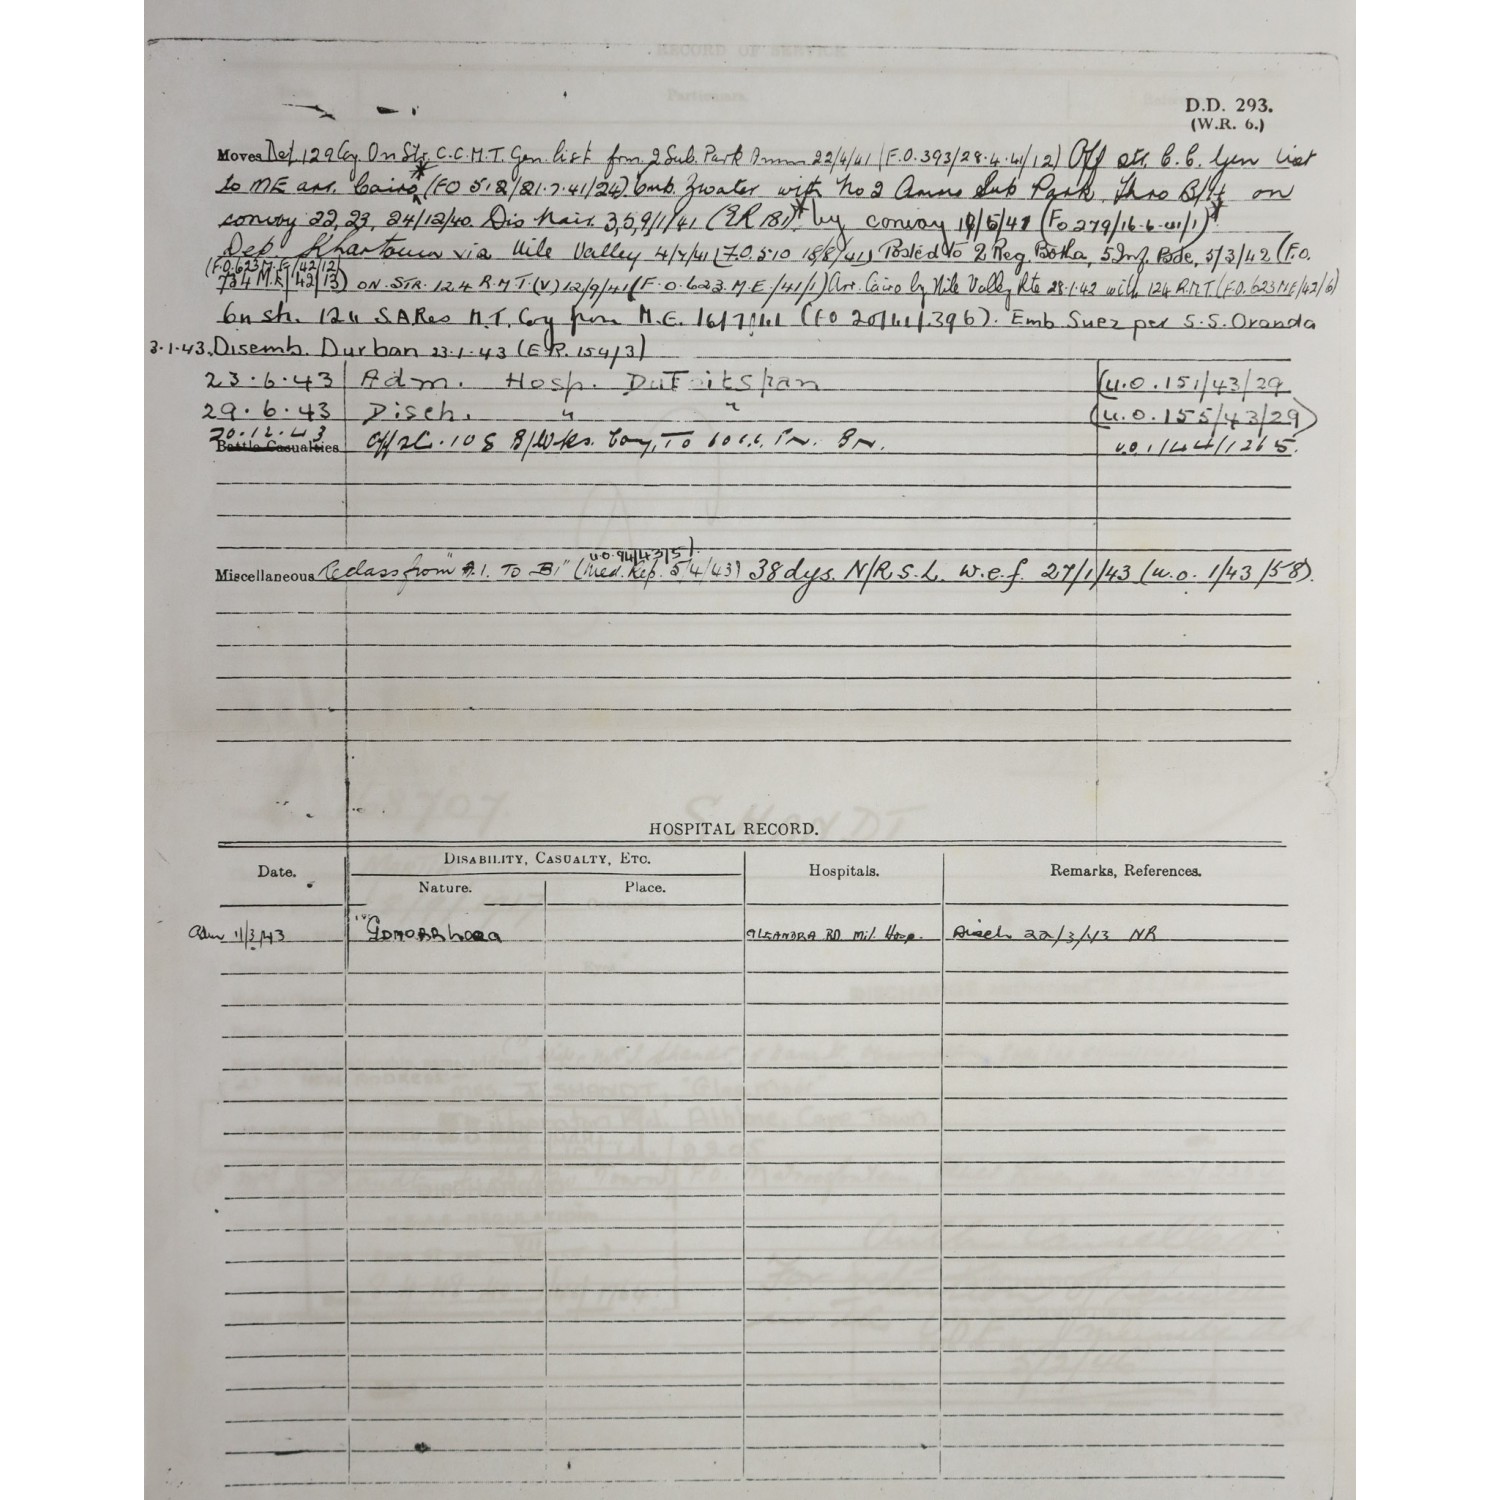 RECORD OF SERVICE
Particulars.
D.D. 293.
(W.R. 6.)
Moves Det 129 Coy On Str C.C.M.T. Gen. list from 2 Sub. Park Amm 22/4/41 (F.O.393/28.4.41/12) Off str. C.C. Gen List
to ME arr. Cairo (FO 518/21.7.41/24) Emb. with No 2 Amm Sub Park. Thro B/H on
convoy 22, 23, 24/12/40. Dis Nair. 3,5,9/1/41 (ER 181) by convoy /6/41 (Fo 279/16.6.41/1)
Dep. Khartoum via Nile Valley 4/7/41 (F.O.510 18/8/41) Posted to 2 Reg. Botha, 5 Inf. Bde, 5/3/42 (F.O.
(F.O.623 M.E/42/12)
734 M.E/42/13) ON. STR. 124 R.M.T.(V) 12/9/41 (F.O.623.M.E./41/1) Arr. Cairo by Nile Valley Rte 28.1.42 with 124 R.M.T (F.O.623 ME/42/6)
On str. 124 S.A Res M.T. Coy from M.E. (FO 20/41/396). Emb Suez per S.S. Oranda
3.1.43. Disemb. Durban 23.1.43 (E.R. 154/3)
23.6.43 Adm. Hosp. DuToitspan (U.O.151/43/29
29.6.43 Disch. " " (U.O.155/43/29)
20.12.43
Battle Casualties Off str. 108 B/Wks. Coy, To Bn. U.O.1/44/1265.
U.O.94/43/5).
Miscellaneous Reclass from "A.1. TO B1" (Med. Rep. 5/4/43) 38 dys. N/R.S.L. w.e.f. 27/1/43 (U.O. 1/43/58).
68707. SHANDT
HOSPITAL RECORD.
Date. Disability, Casualty, Etc. Hospitals. Remarks, References.
Nature. Place.
Adm 11/3/43 Gonorrhoea ALEANDRA RD Mil. Hosp. Disch 22/3/43 NR